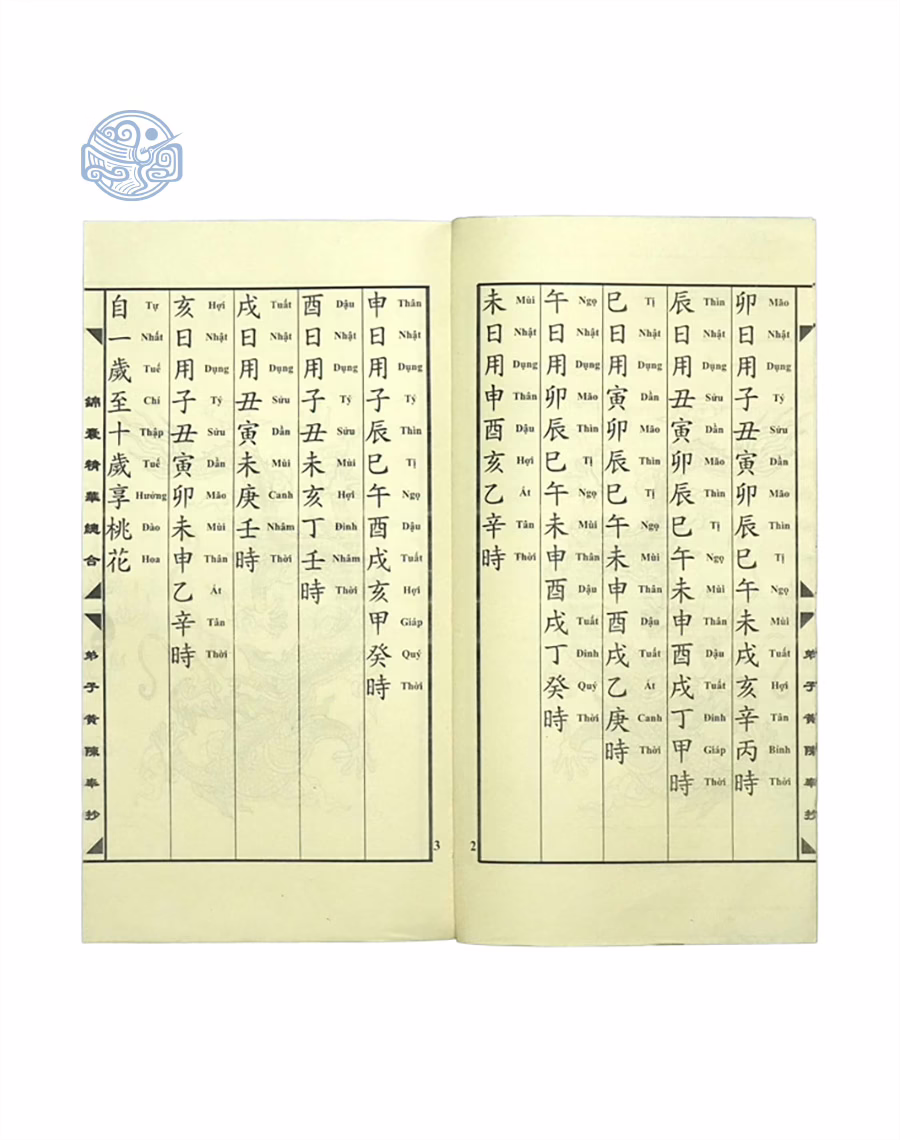 卯日用子丑寅卯辰巳午未戌亥辛丙時
Mão Nhật Dụng Tý Sửu Dần Mão Thìn Tị Ngọ Mùi Tuất Hợi Tân Bính Thời
辰日用丑寅卯辰巳午未申酉戌丁甲時
Thìn Nhật Dụng Sửu Dần Mão Thìn Tị Ngọ Mùi Thân Dậu Tuất Đinh Giáp Thời
巳日用寅卯辰巳午未申酉戌乙庚時
Tị Nhật Dụng Dần Mão Thìn Tị Ngọ Mùi Thân Dậu Tuất Át Canh Thời
午日用卯辰巳午未申酉戌丁癸時
Ngọ Nhật Dụng Mão Thìn Tị Ngọ Mùi Thân Dậu Tuất Đinh Quý Thời
未日用申酉亥乙辛時
Mùi Nhật Dụng Thân Dậu Hợi Át Tân Thời
2
申日用子辰巳午酉戌亥甲癸時
Thân Nhật Dụng Tý Thìn Tị Ngọ Dậu Tuất Hợi Giáp Quý Thời
酉日用子丑未亥丁壬時
Dậu Nhật Dụng Tý Sửu Mùi Hợi Đinh Nhâm Thời
戌日用丑寅未庚壬時
Tuất Nhật Dụng Sửu Dần Mùi Canh Nhâm Thời
亥日用子丑寅卯未申乙辛時
Hợi Nhật Dụng Tý Sửu Dần Mão Mùi Thân Át Tân Thời
自一歲至十歲享桃花
Tự Nhất Tuế Chí Thập Tuế Hưởng Đào Hoa
錦囊精華總合
弟子黃陳奉抄
3